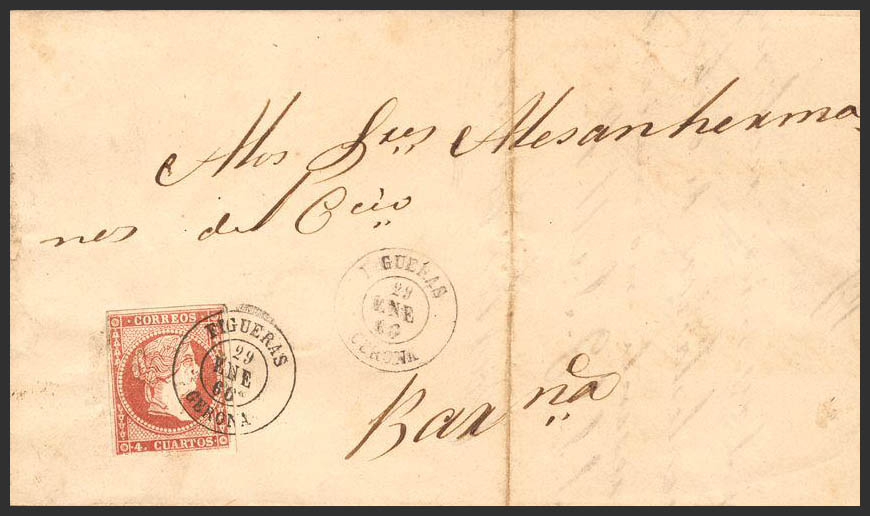 Alos Sres Alesanherma
nos del Ccio
FIGUERAS
29
ENE
GERONA
CORREOS
FIGUERAS
29
ENE
60
GERONA
4. CUARTOS
Barna